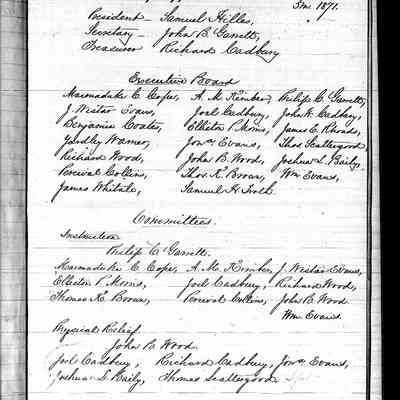 5mo 1871.
President Samuel Hilles,
Secretary – John B Garrett,
Treasurer Richard Cadbury
Executive Board
Marmaduke C Cope, A. M. Kimber, Philip C. Garrett,
J. Wistar Evans, Joel Cadbury, John W. Cadbury,
Benjamin Coates, Elliston P. Morris, James E. Rhoads,
Yardley Warner, Jona Evans, Thos Scattergood
Richard Wood, John B. Wood, Joshua L. Baily,
Percival Collins, Thos. K. Brown, Wm. Evans,
James Whitall, Samuel H. Troth.
Committees.
Instruction
Philip C Garrett.
Marmaduke C Cope, A. M. Kimber, J. Wistar Evans,
Elliston P Morris, Joel Cadbury, Richard Wood,
Thomas K. Brown, Percival Collins, John B. Wood
Wm. Evans
Physical Relief
John B. Wood.
Joel Cadbury, Richard Cadbury, Jona Evans,
Joshua L Baily, Thomas Scattergood